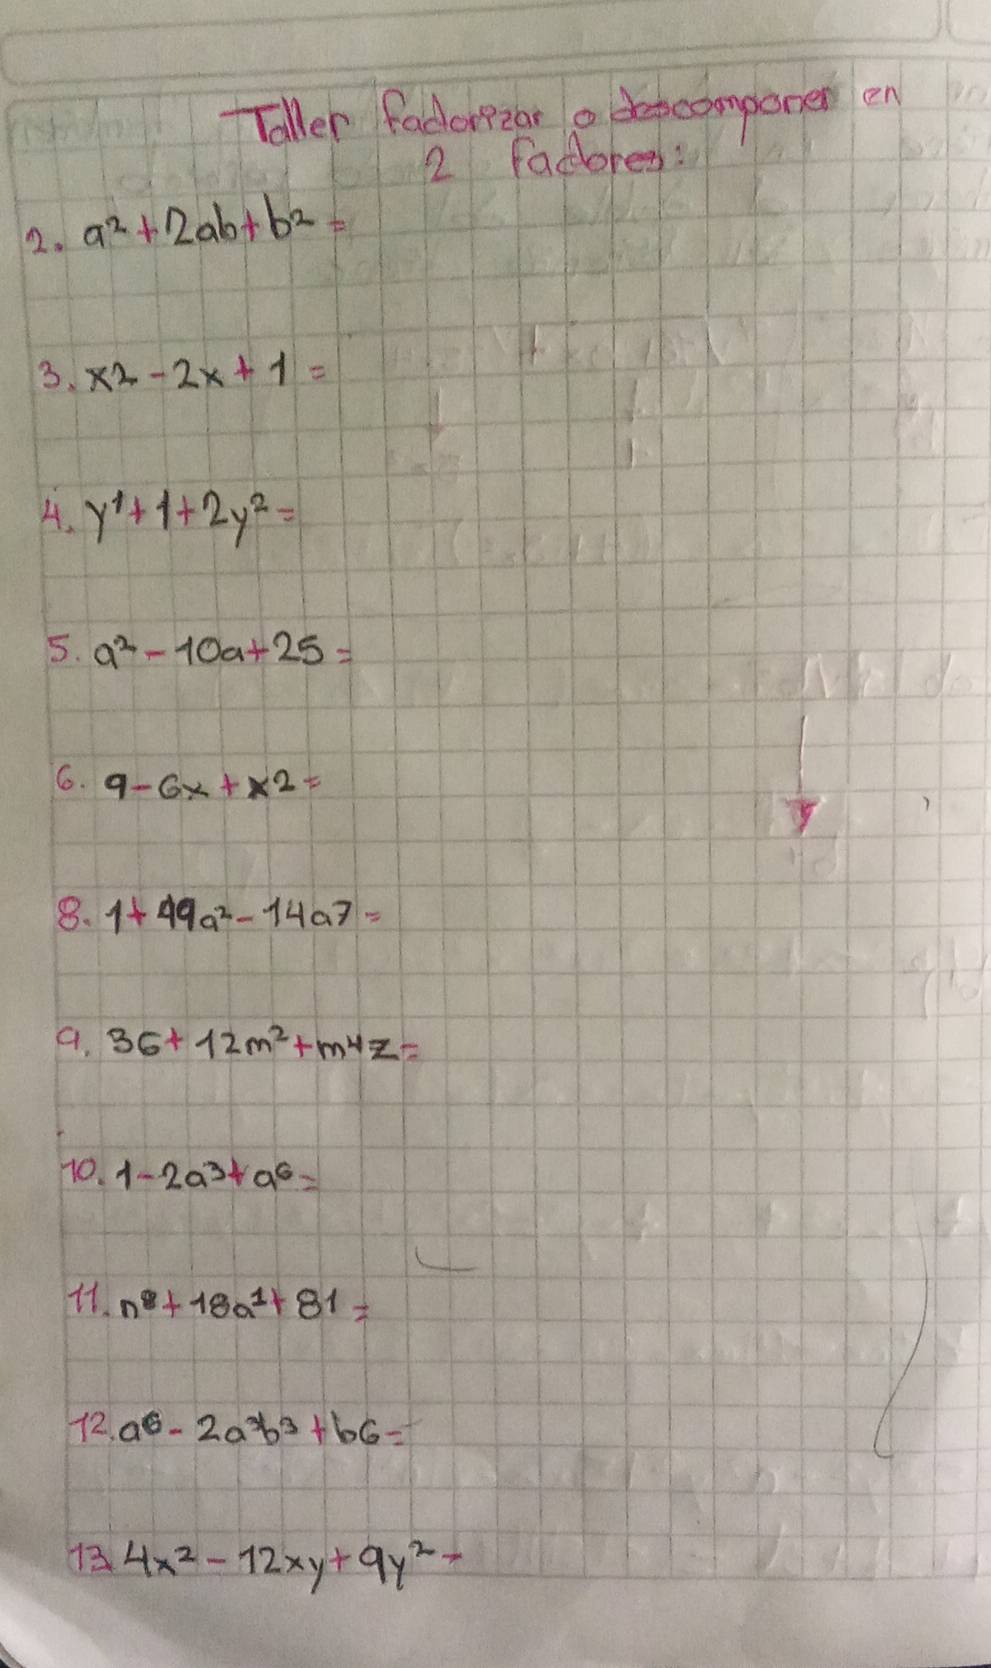 Taller factorizar o descomponer en
2 factores:
2. a² + 2ab + b² =
3. x2 - 2x + 1 =
4. y¹ + 1 + 2y² =
5. a² - 10a + 25 =
6. 9 - 6x + x2 =
8. 1 + 49a² - 14a7 =
9. 36 + 12m² + m⁴z =
10. 1 - 2a³ + a⁶ =
11. n⁸ + 18a¹ + 81 =
12. a⁶ - 2a³b³ + b6 =
13. 4x² - 12xy + 9y² =